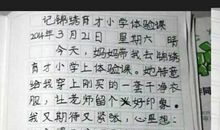 记锦绣育才小学体验课
2014年3月21日 星期六 晴
今天，妈妈带我去锦绣
育才小学上体验课。她特意
给我穿上刚买的一套干净衣
服，让老师留个好印象。
我又期待又紧张，心里想：